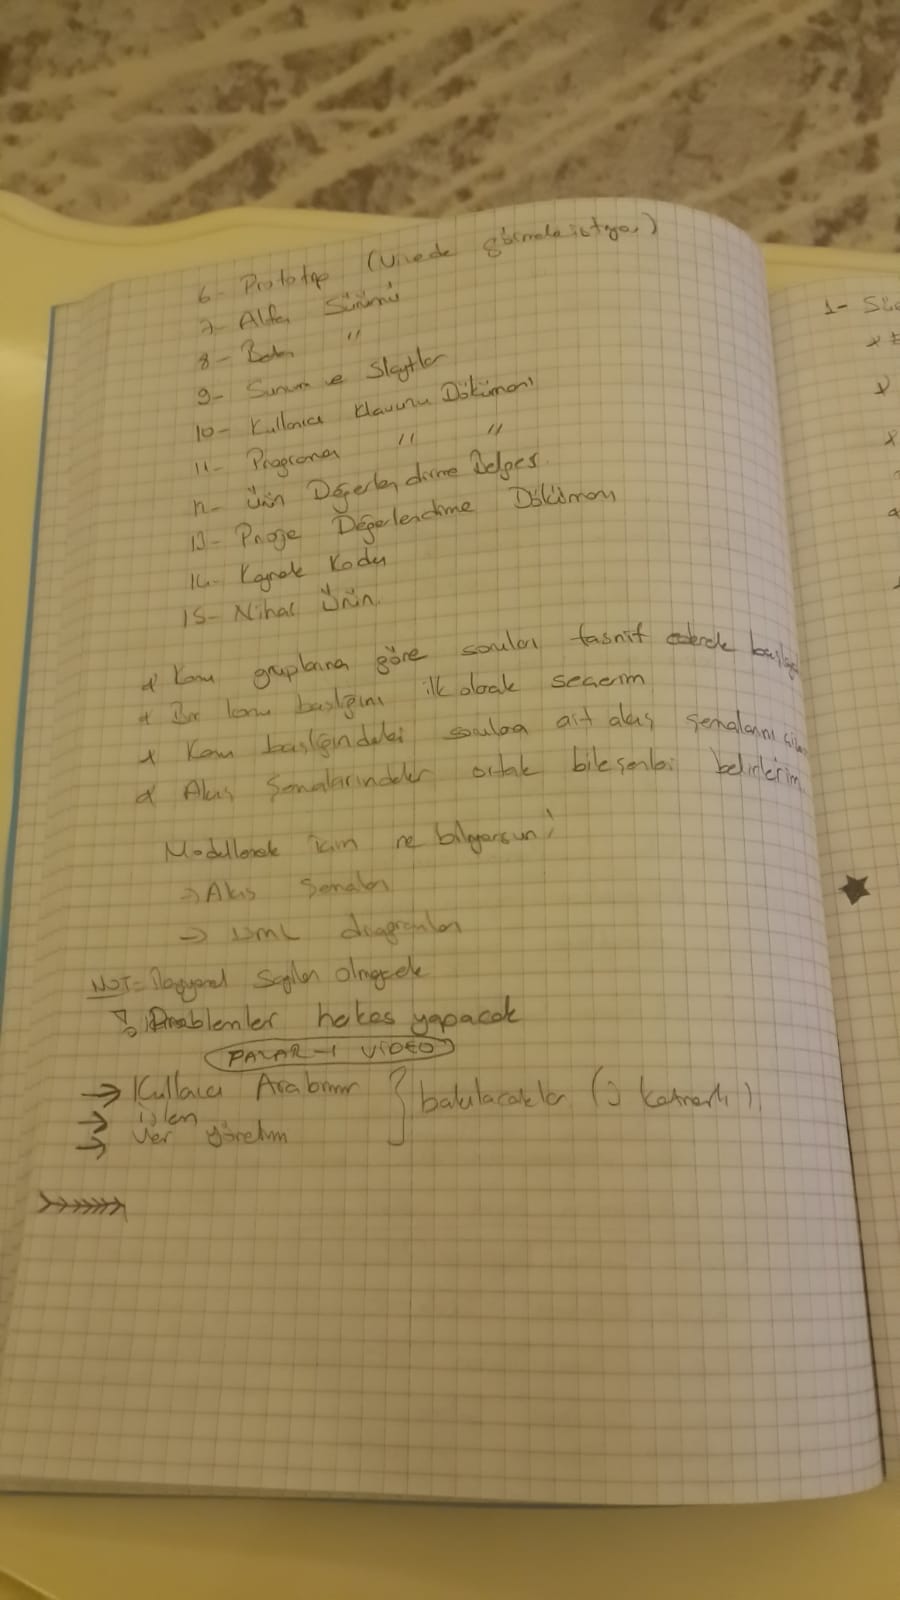 6- Prototip (Vizede görmek istiyor)
7- Alfa Sürümü
8- Beta "
9- Sunum ve Slaytlar
10- Kullanıcı Klavuzu Dökümanı
11- Programcı " "
12- Ürün Değerlendirme Belgesi
13- Proje Değerlendirme Dökümanı
14- Kaynak Kodu
15- Nihai Ürün
* Konu gruplarına göre soruları tasnif ederek
* Bir konu başlığını ilk olarak seçerim
* Konu başlığındaki sorulara ait akış şemalarını
* Akış Şemalarındaki ortak bileşenleri belirlerim
Modellemek için ne biliyorsun?
→ Akış Şemaları
→ UML diagramları
NOT= olmayacak
! Problemler herkes yapacak
PAZAR-1 VİDEO
→ Kullanıcı Arabirimi
→ işlem } bakılacaklar (3 Katmanlı)
→ Veri yönetim
1-